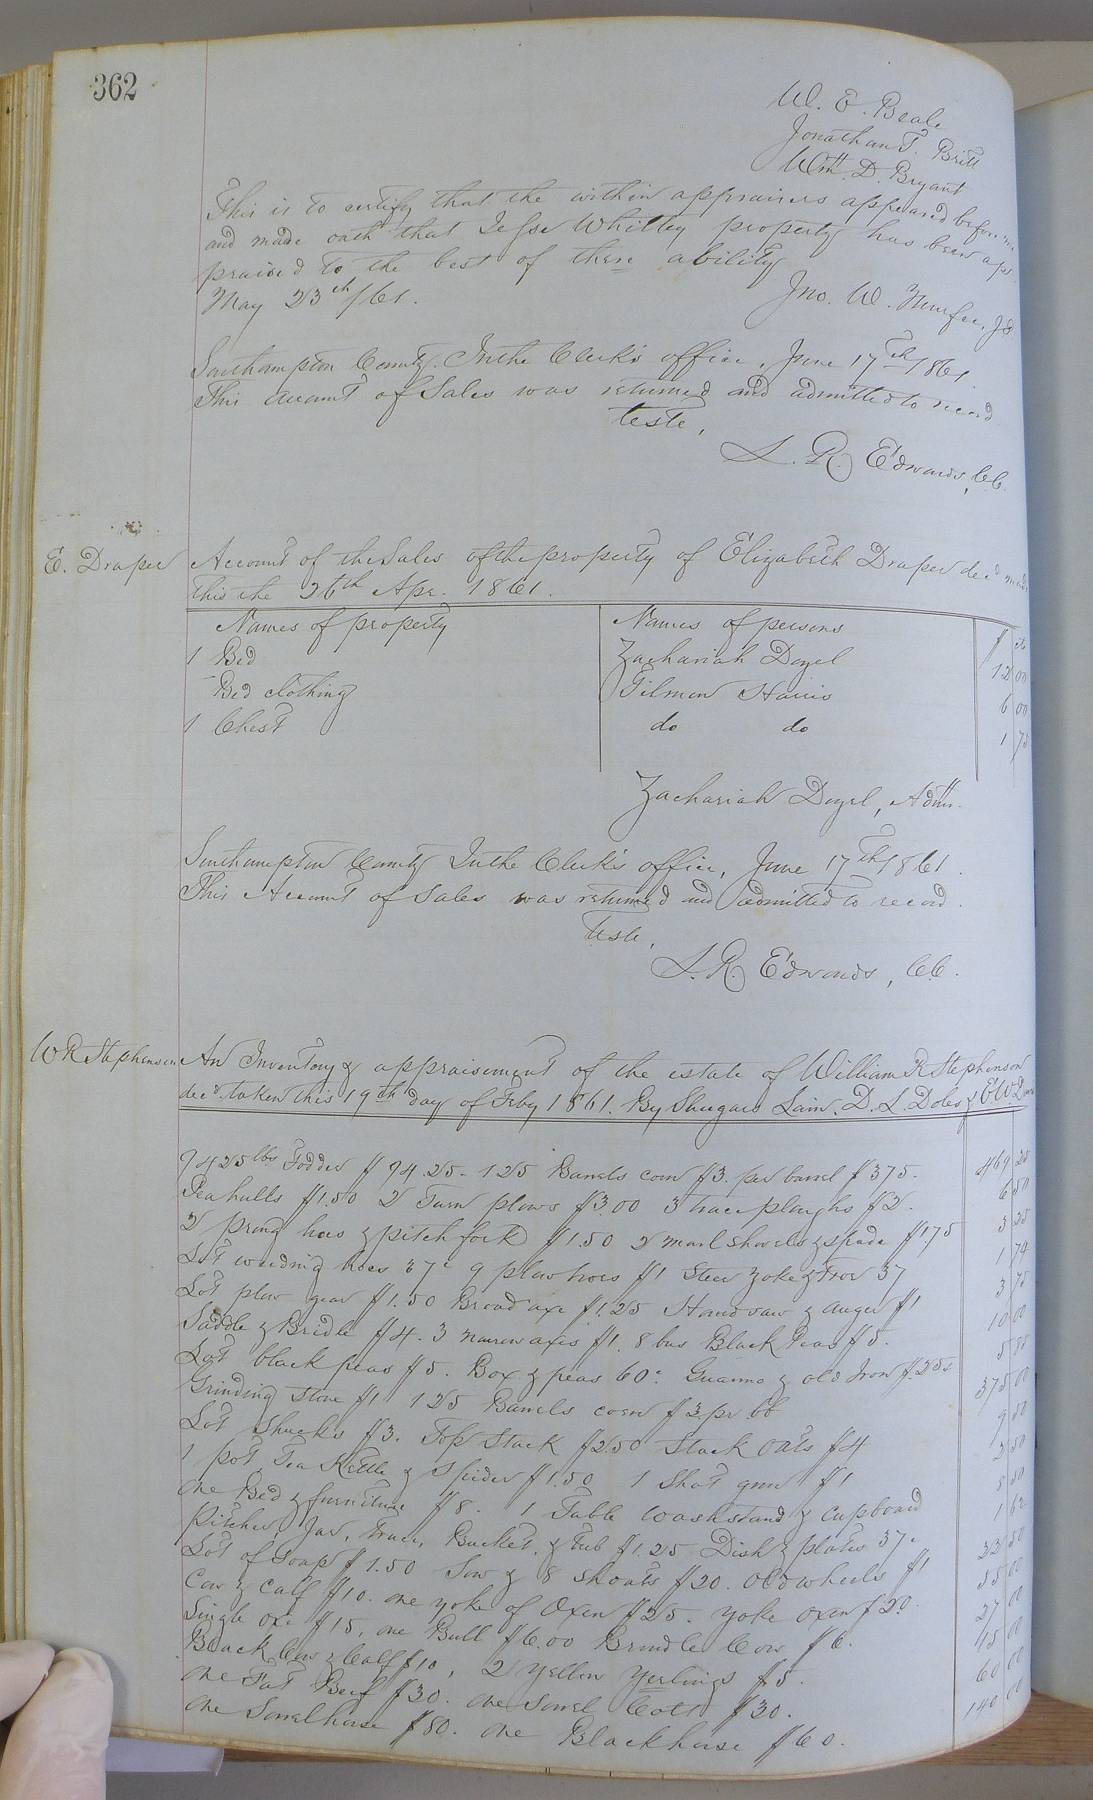 362
W. E. Beale
Jonathan T. Britt
Wm. D. Bryant
This is to certify that the within appraisers appeared before me
and made oath that Jesse Whitley property has been ap
praised to the best of there ability
May 23th /61. Jno. W. J.P.
Southampton County. In the Clerk's office, June 17th 1861.
This account of Sales was returned and admitted to record
Teste,
L. R. Edwards, C.C.
E. Draper
Account of the Sales of the property of Elizabeth Draper decd made
this the 26th Apr. 1861.
Names of property Names of persons $ cts
1 Bed Zachariah Doyel 12 00
" Bed clothing Tilmon Harris 6 00
1 Chest do do 1 75
Zachariah Doyel, Adm.
Southampton County In the Clerk's office, June 17th 1861.
This Account of Sales was returned and admitted to record.
Teste,
L. R. Edwards, C.C.
W R Stephenson
An Inventory & appraisement of the estate of William R Stephenson
decd. taken this 19th day of Feby 1861. By Shugars Lain. D. L. Doles & E W
9425 lbs Fodder $94.25 - 125 Barrels corn $3. per barrel $375. 469 25
Pea hulls $1.50 2 Turn plows $3.00 3 trace ploughs $2. 6 50
2 prong hoes & pitch fork $1.50 2 marl shovels & spade $1.75 3 25
Lot weeding hoes 37c 9 plow hoes $1 Steer yoke & Frow 37 1 74
Lot plow gear $1.50 Broad axe $1.25 Handsaw & auger $1 3 75
Saddle & Bridle $4. 3 narrow axes $1. 8 bus Black Peas $5. 10 00
Lot black peas $5. Box & peas 60c. Guanno & old Iron $.25c 5 85
Grinding Stone $1 125 Barrels corn $3 pr bb 375 00
Lot Shucks $3. Top Stack $2.50 Stack Oats $4 9 50
1 pot Tea Kettle & Spider $1.50 1 Shot gun $1 2 50
One Bed & furniture $8. 1 Table washstand & cupboard 8 50
Pitcher, Jar, Bucket. & Tub $1.25 Dish & plates 37c 1 62
Lot of Soap $1.50 Sow & 8 shoats $20. Old wheels $1 22 50
Cow & calf $10. one yoke of Oxen $25. yoke oxen $20. 55 00
Single ox. $15, one Bull $6.00 Brindle Cow $6. 27 00
Black Cow & Calf $10, 2 Yellow Yerlings $5. 15 00
One Fat Beef $30. One Sorrel Colt $30. 60 00
One Sorrel horse $80. One Black horse $60. 140 00